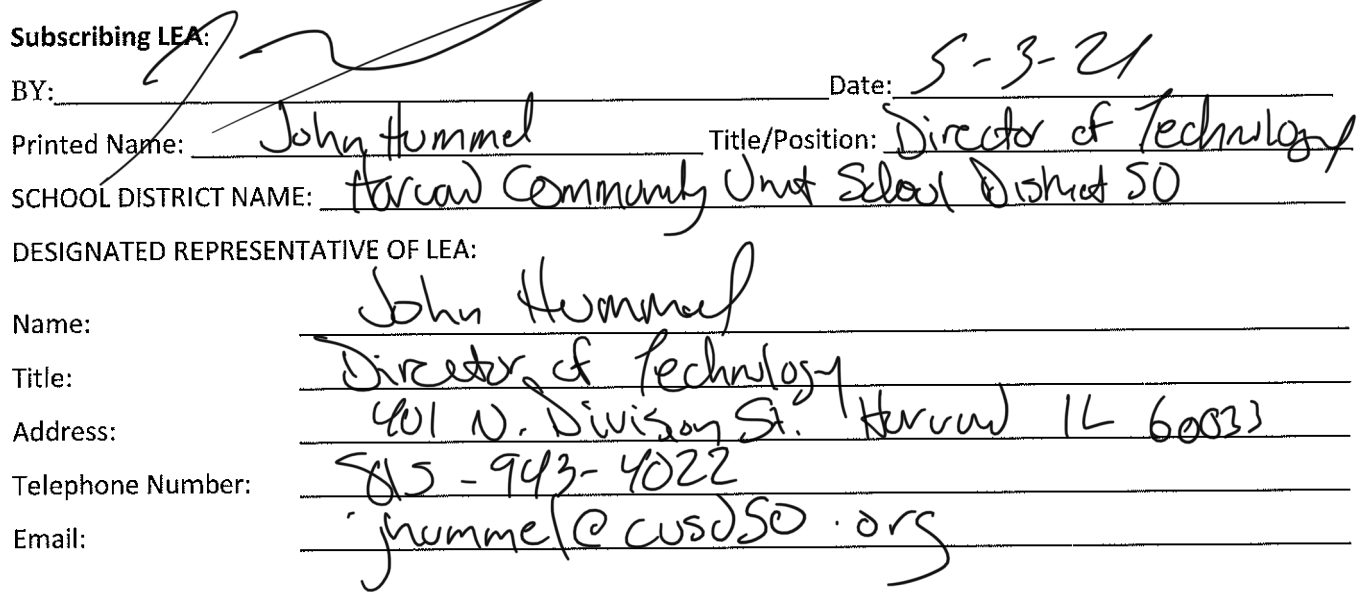 Subscribing LEA:
BY: Date: 5-3-21
Printed Name: John Hummel Title/Position: Director of Technology
SCHOOL DISTRICT NAME: Harvard Community Unit School District 50
DESIGNATED REPRESENTATIVE OF LEA:
Name: John Hummel
Title: Director of Technology
Address: 401 N. Division St. Harvard IL 60033
Telephone Number: 815-943-4022
Email: jhummel@cusd50.org